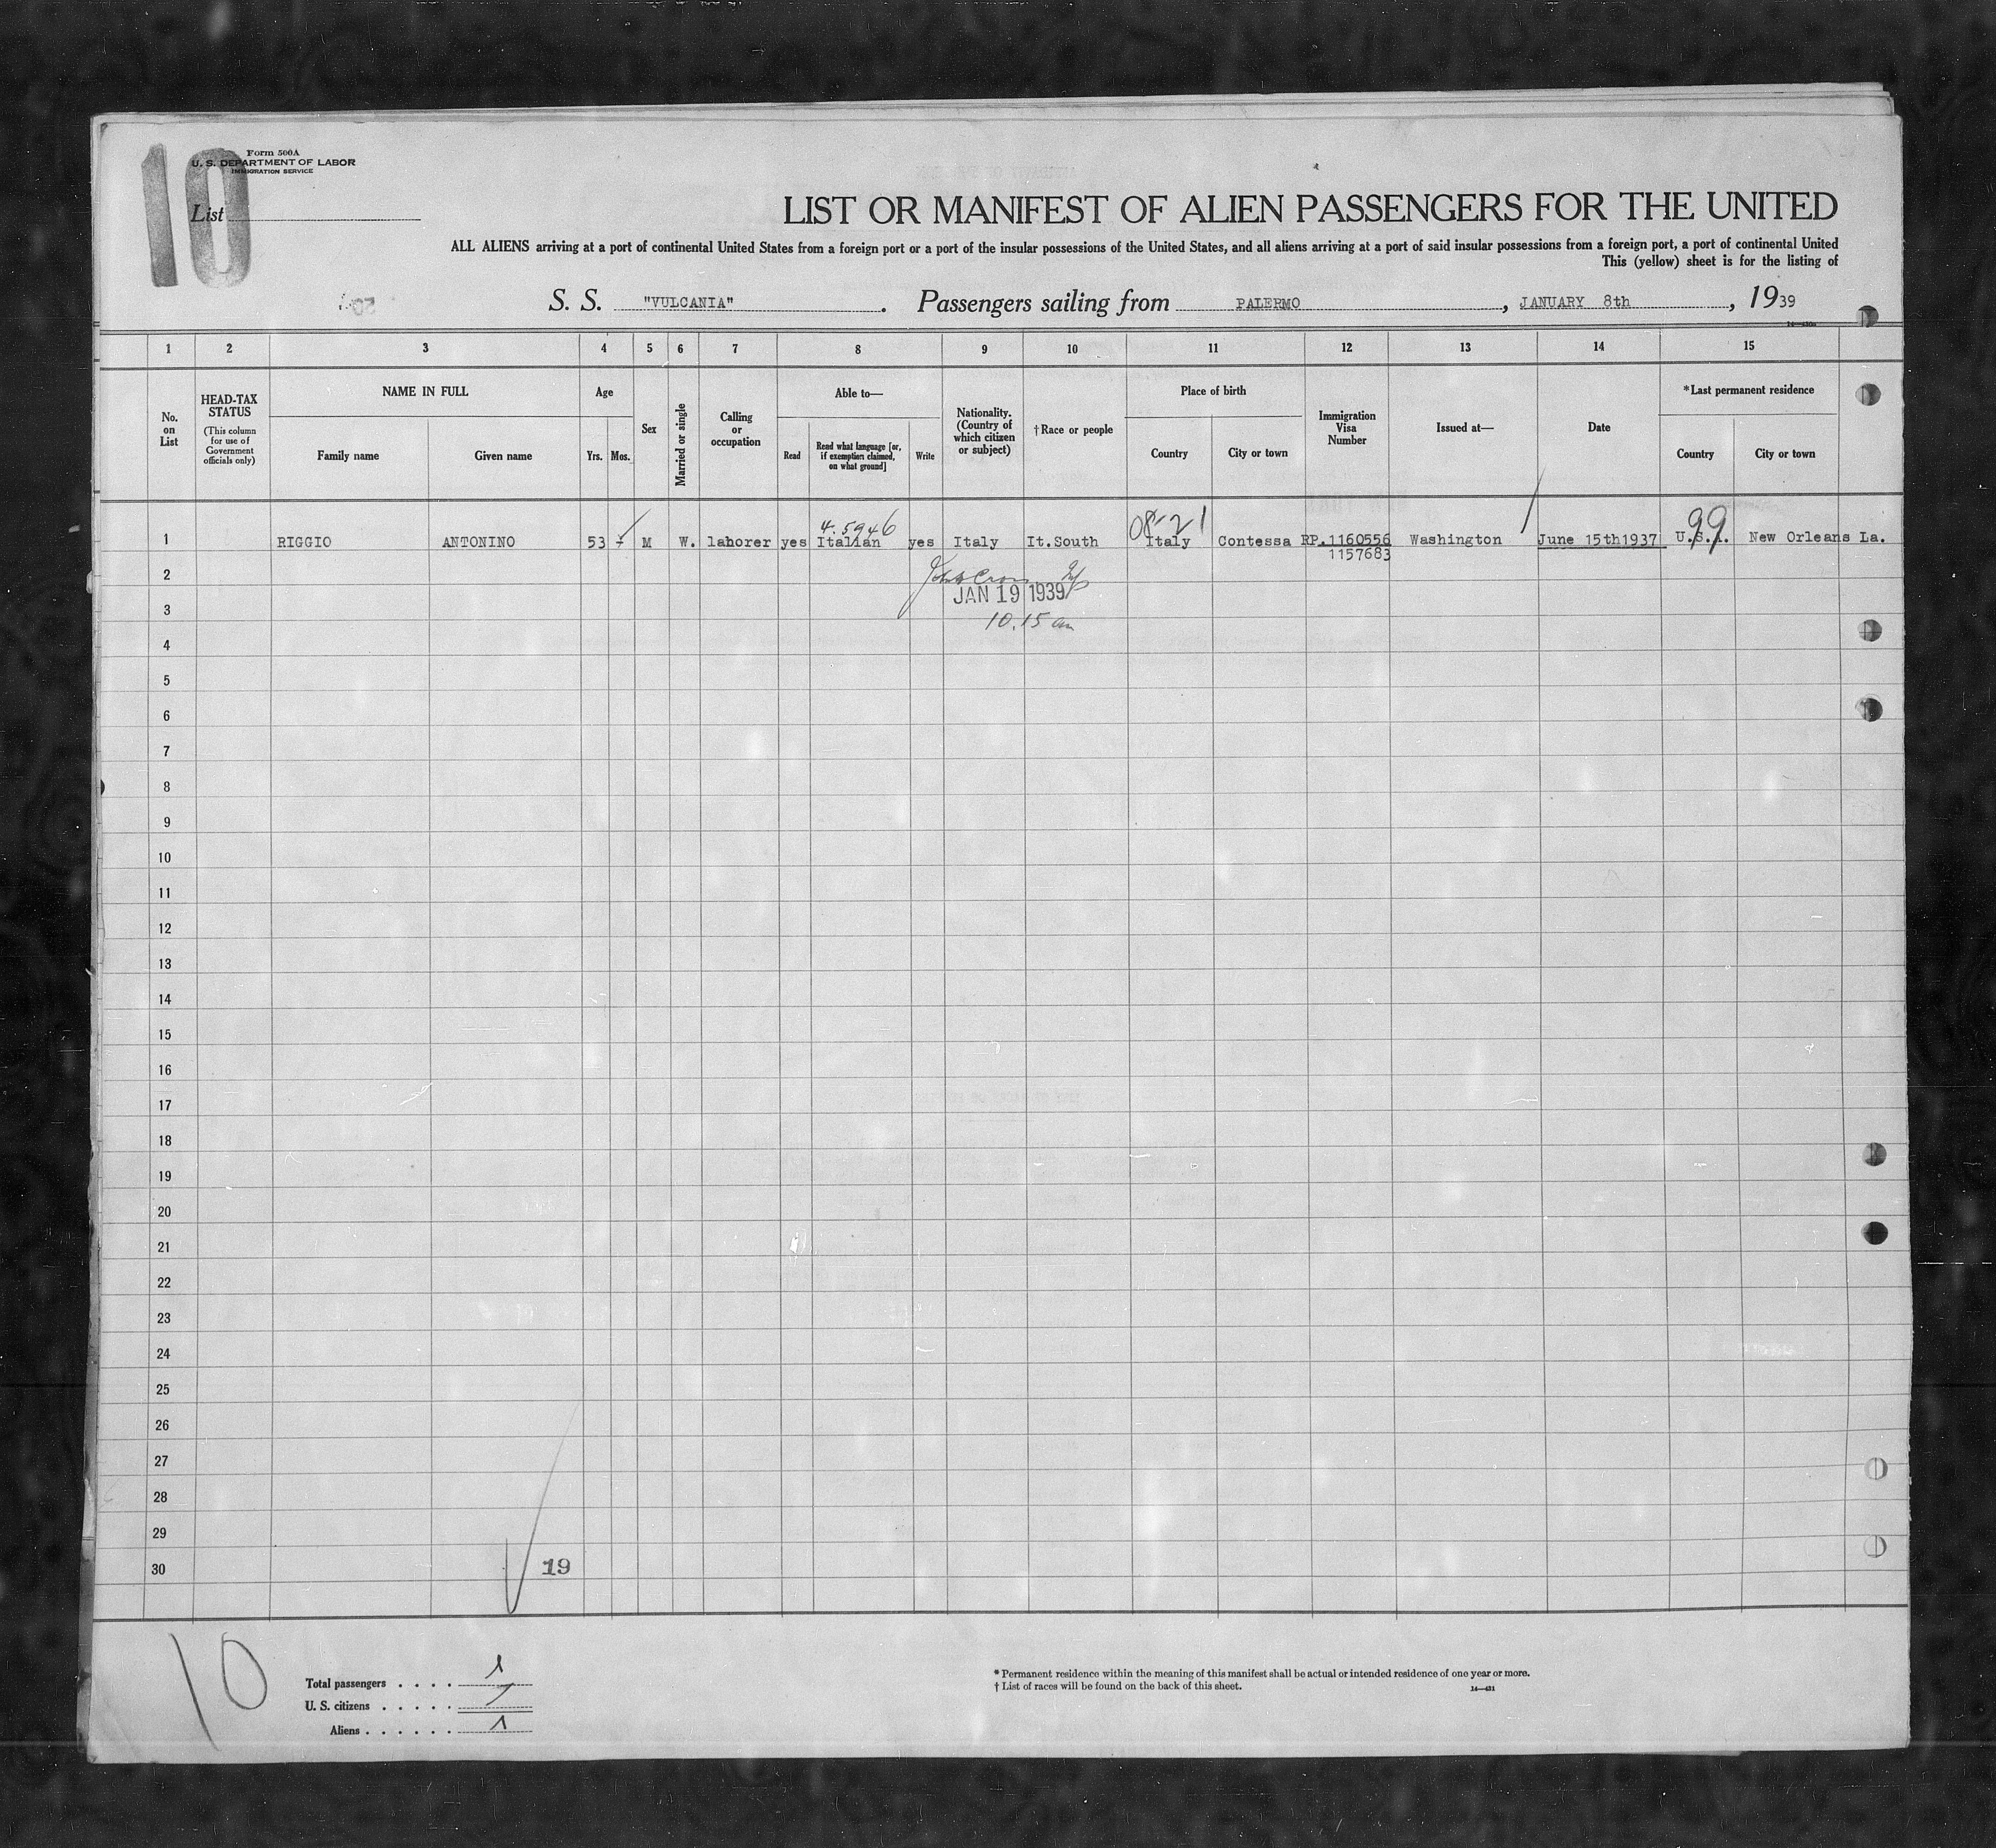 10
Form 500A
U. S. DEPARTMENT OF LABOR
IMMIGRATION SERVICE
List
LIST OR MANIFEST OF ALIEN PASSENGERS FOR THE UNITED
ALL ALIENS arriving at a port of continental United States from a foreign port or a port of the insular possessions of the United States, and all aliens arriving at a port of said insular possessions from a foreign port, a port of continental United
This (yellow) sheet is for the listing of
S. S. "VULCANIA". Passengers sailing from PALERMO, JANUARY 8th, 1939
1 2 3 4 5 6 7 8 9 10 11 12 13 14 15
No. on List
HEAD-TAX STATUS
(This column for use of Government officials only)
NAME IN FULL
Family name
Given name
Age
Yrs. Mos.
Sex
Married or single
Calling or occupation
Able to—
Read
Read what language [or, if exemption claimed, on what ground]
Write
Nationality. (Country of which citizen or subject)
† Race or people
Place of birth
Country
City or town
Immigration Visa Number
Issued at—
Date
* Last permanent residence
Country
City or town
4.5946 08-21 99
1 RIGGIO ANTONINO 53 M W. laborer yes Italian yes Italy It.South Italy Contessa RP.1160556 Washington June 15th1937 U.S.A. New Orleans La.
1157683
2
JAN 19 1939
3
10.15 am
4
5
6
7
8
9
10
11
12
13
14
15
16
17
18
19
20
21
22
23
24
25
26
27
28
29
30
19
10
Total passengers . . . . 1
U. S. citizens . . . . .
Aliens . . . . . . 1
* Permanent residence within the meaning of this manifest shall be actual or intended residence of one year or more.
† List of races will be found on the back of this sheet.
14—431